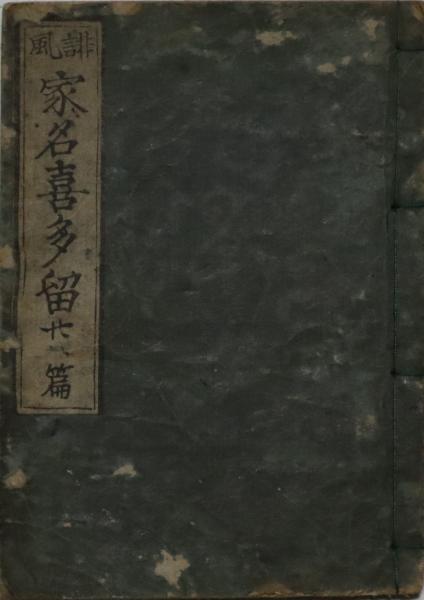 誹風
家名喜多留廿 篇